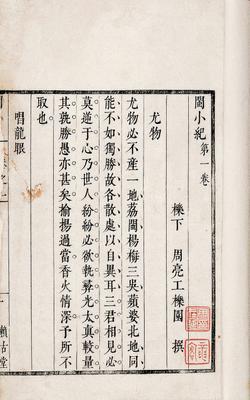 閩小紀第一卷
櫟下 周亮工櫟園 撰
尤物
尤物必不產一地荔閩楊梅三吳蘋婆北地同
能不如獨勝故各散處以自異耳三君相見必
莫逆于心乃世人紛紛必欲執
太真較量
其孰勝愚亦甚矣揄揚過當香火情深予所不
取也
唱龍眼
賴古堂